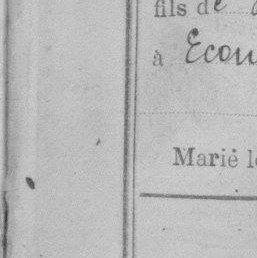 fils de
à Ecou
Marié le